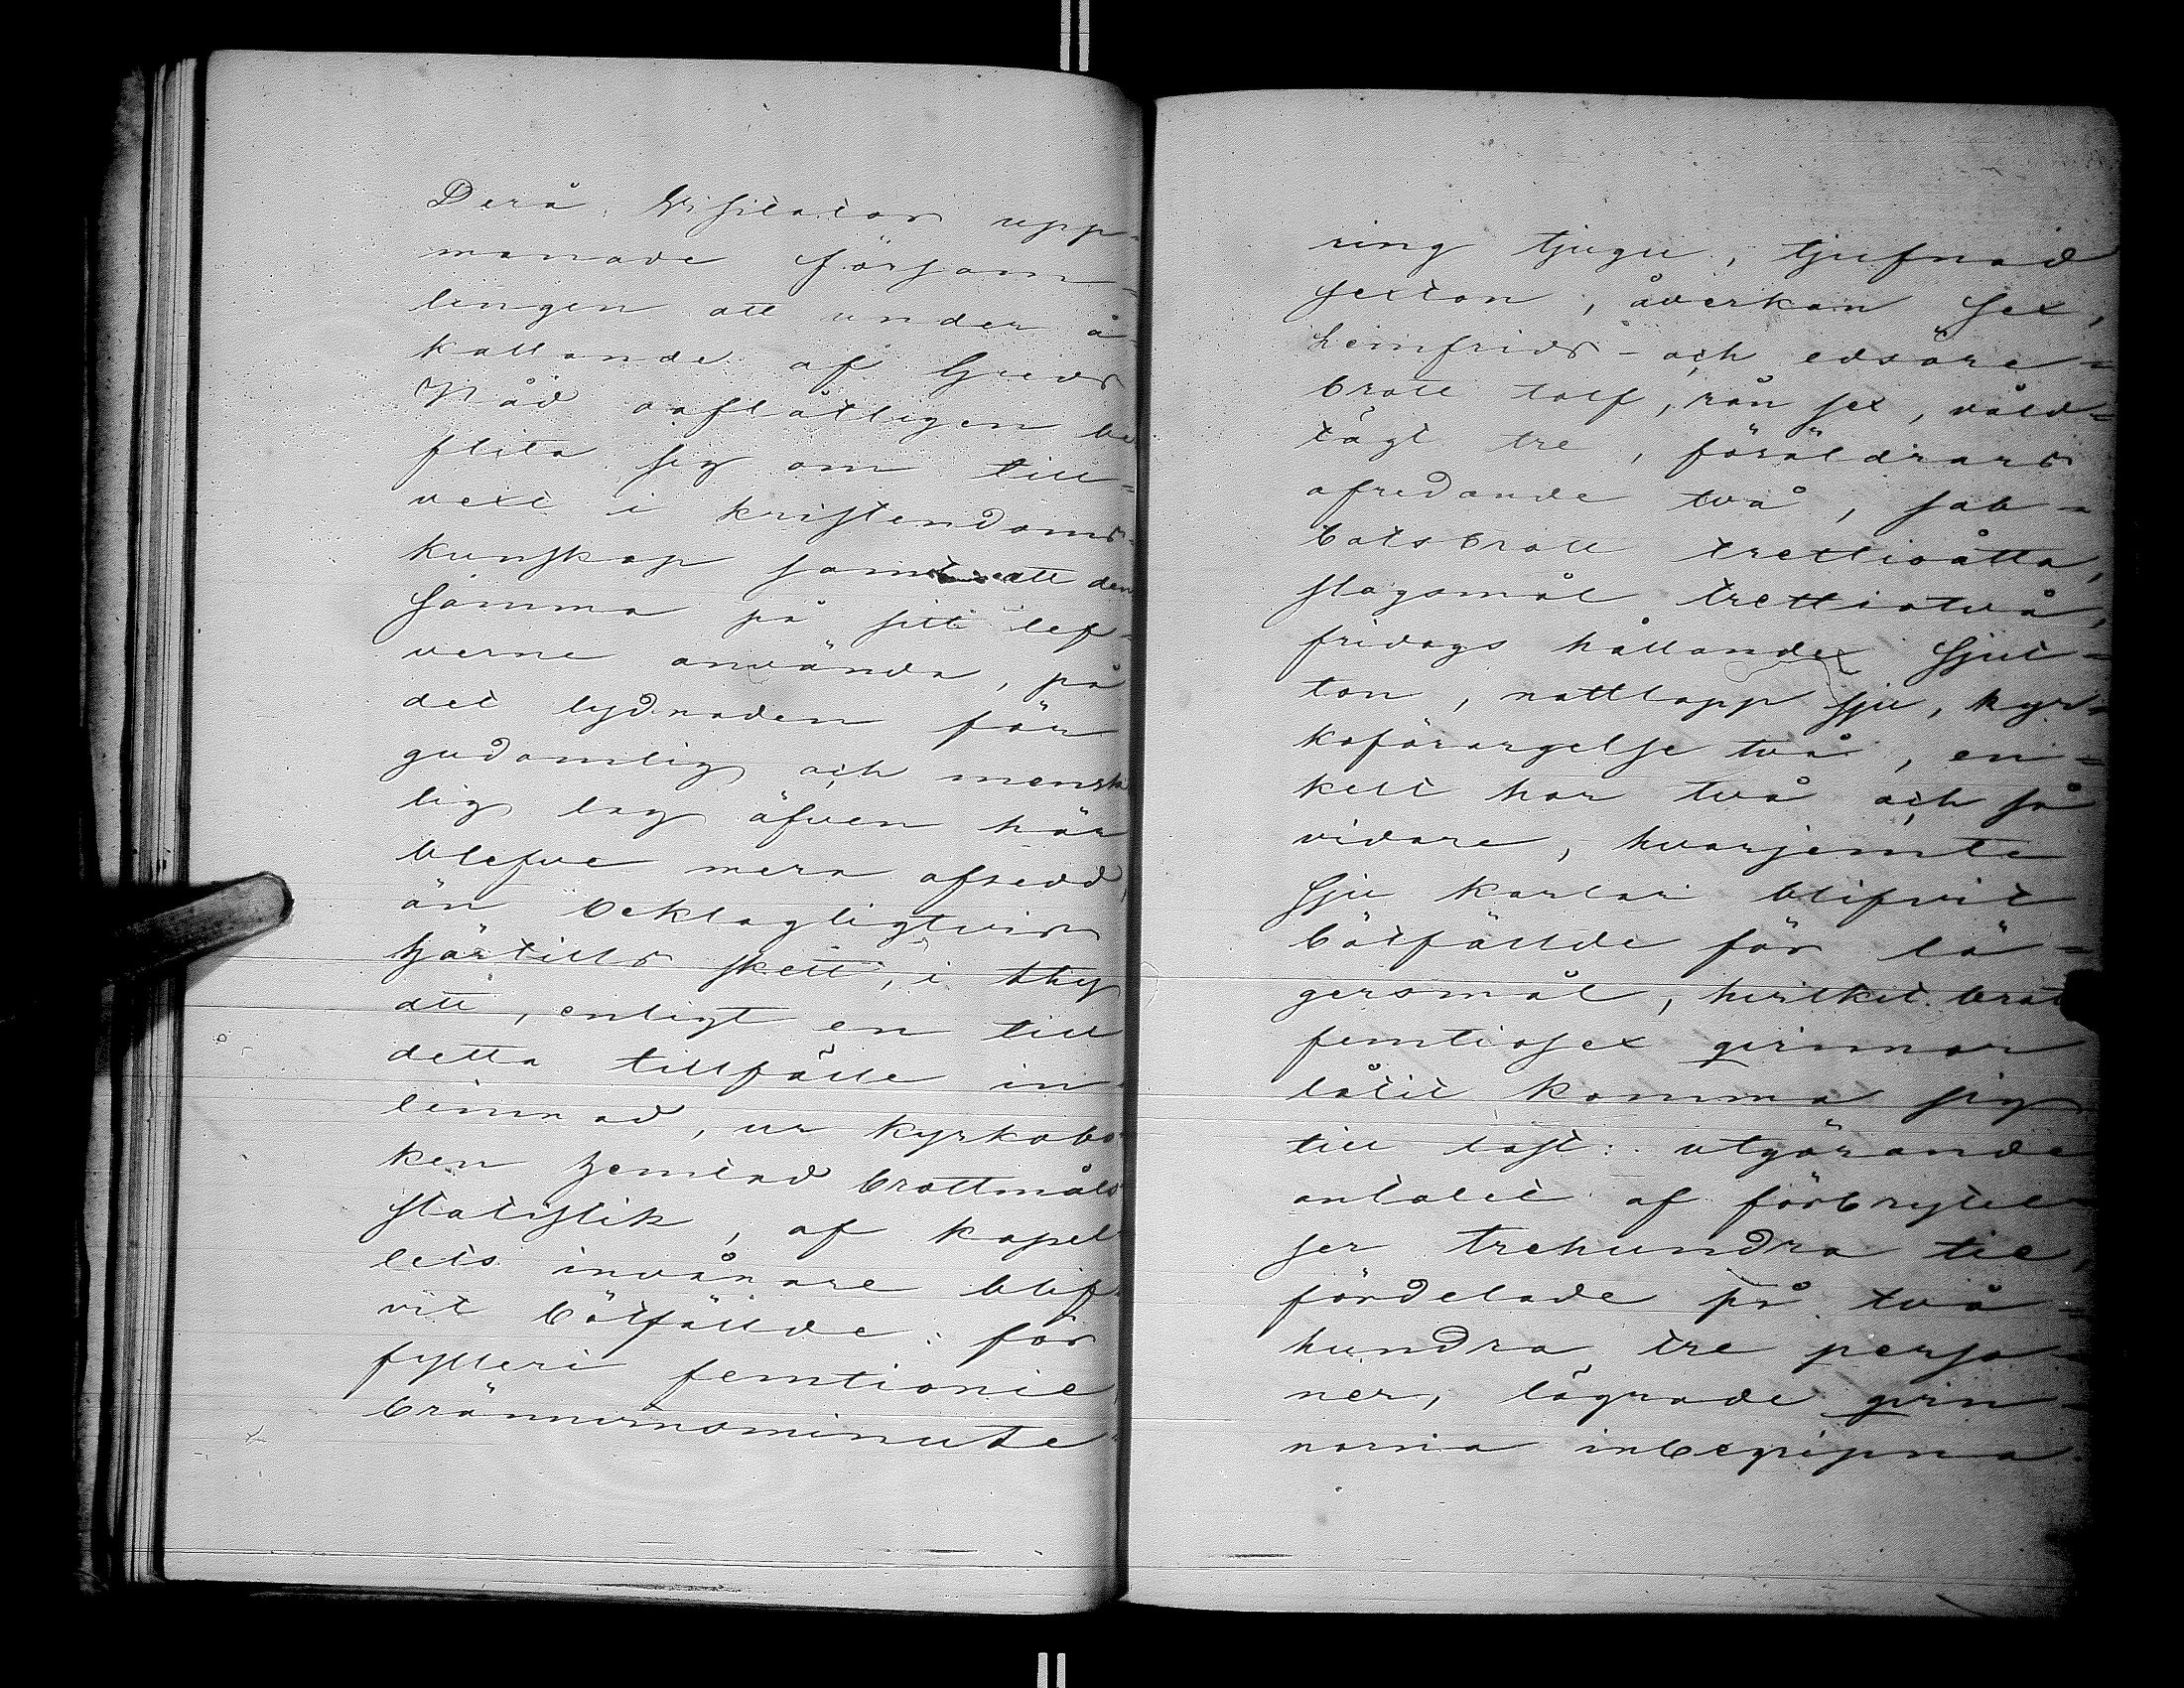 Derå Visitator upp-
manade församm-
lingen att under å-
kallande af Guds
Nåd oaflåtligen be
flita sig om till-
vext i kristendoms-
kunskap samt att den
samma på sitt lef-
verne använda, på
det lydnaden för
gudomlig och mensk
lig lag äfven här
blefve mera afsedd,
än beklagligtvis
härtills skett, i thy
att, enligt en till
detta tillfälle in-
lemnad, ur kyrkobö-
ken hemtad brottmåls
statistik, af kapel-
lets invånare blif-
vit bötfällde: för
fylleri femtionie,
bränvinsminute-
ring tjugu, tjufnad
sexton, åverkan sex,
hemfrids- och edsöre-
brott tolf, rån sex, våld-
tägt tre, föräldrars
ofredande två, sab-
batsbrott trettioåtta,
slagsmål trettiotvå,
fridags hållande sjut-
ton, nattlopp sju, kyr-
koförargelse två, en-
kelt hor två och så
vidare, hvarjemte
sju karlar blifvit
bötfällde för lä-
gersmål, hvilket brot
femtiosex qvinnor
låtit komma sig
till last: utgörande
antalet af förbrytel-
ser trehundra tie,
fördelade på två-
hundra tre perso-
ner, lägrade qvin-
norna inbegripna.